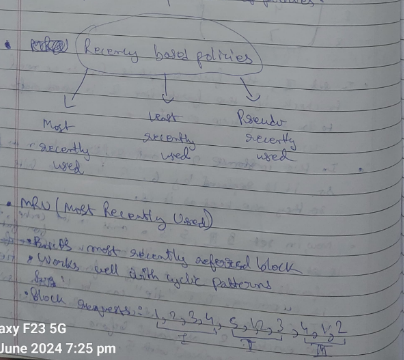 Recently based policies
Most recently used
Least recently used
Pseudo recently used
• MRU (Most Recently Used)
most recently refered block
• Works well with cyclic patterns
• Block request: 1, 2, 3, 4, 5, 1, 2, 3, 4, 1, 2
I II III
axy F23 5G
June 2024 7:25 pm